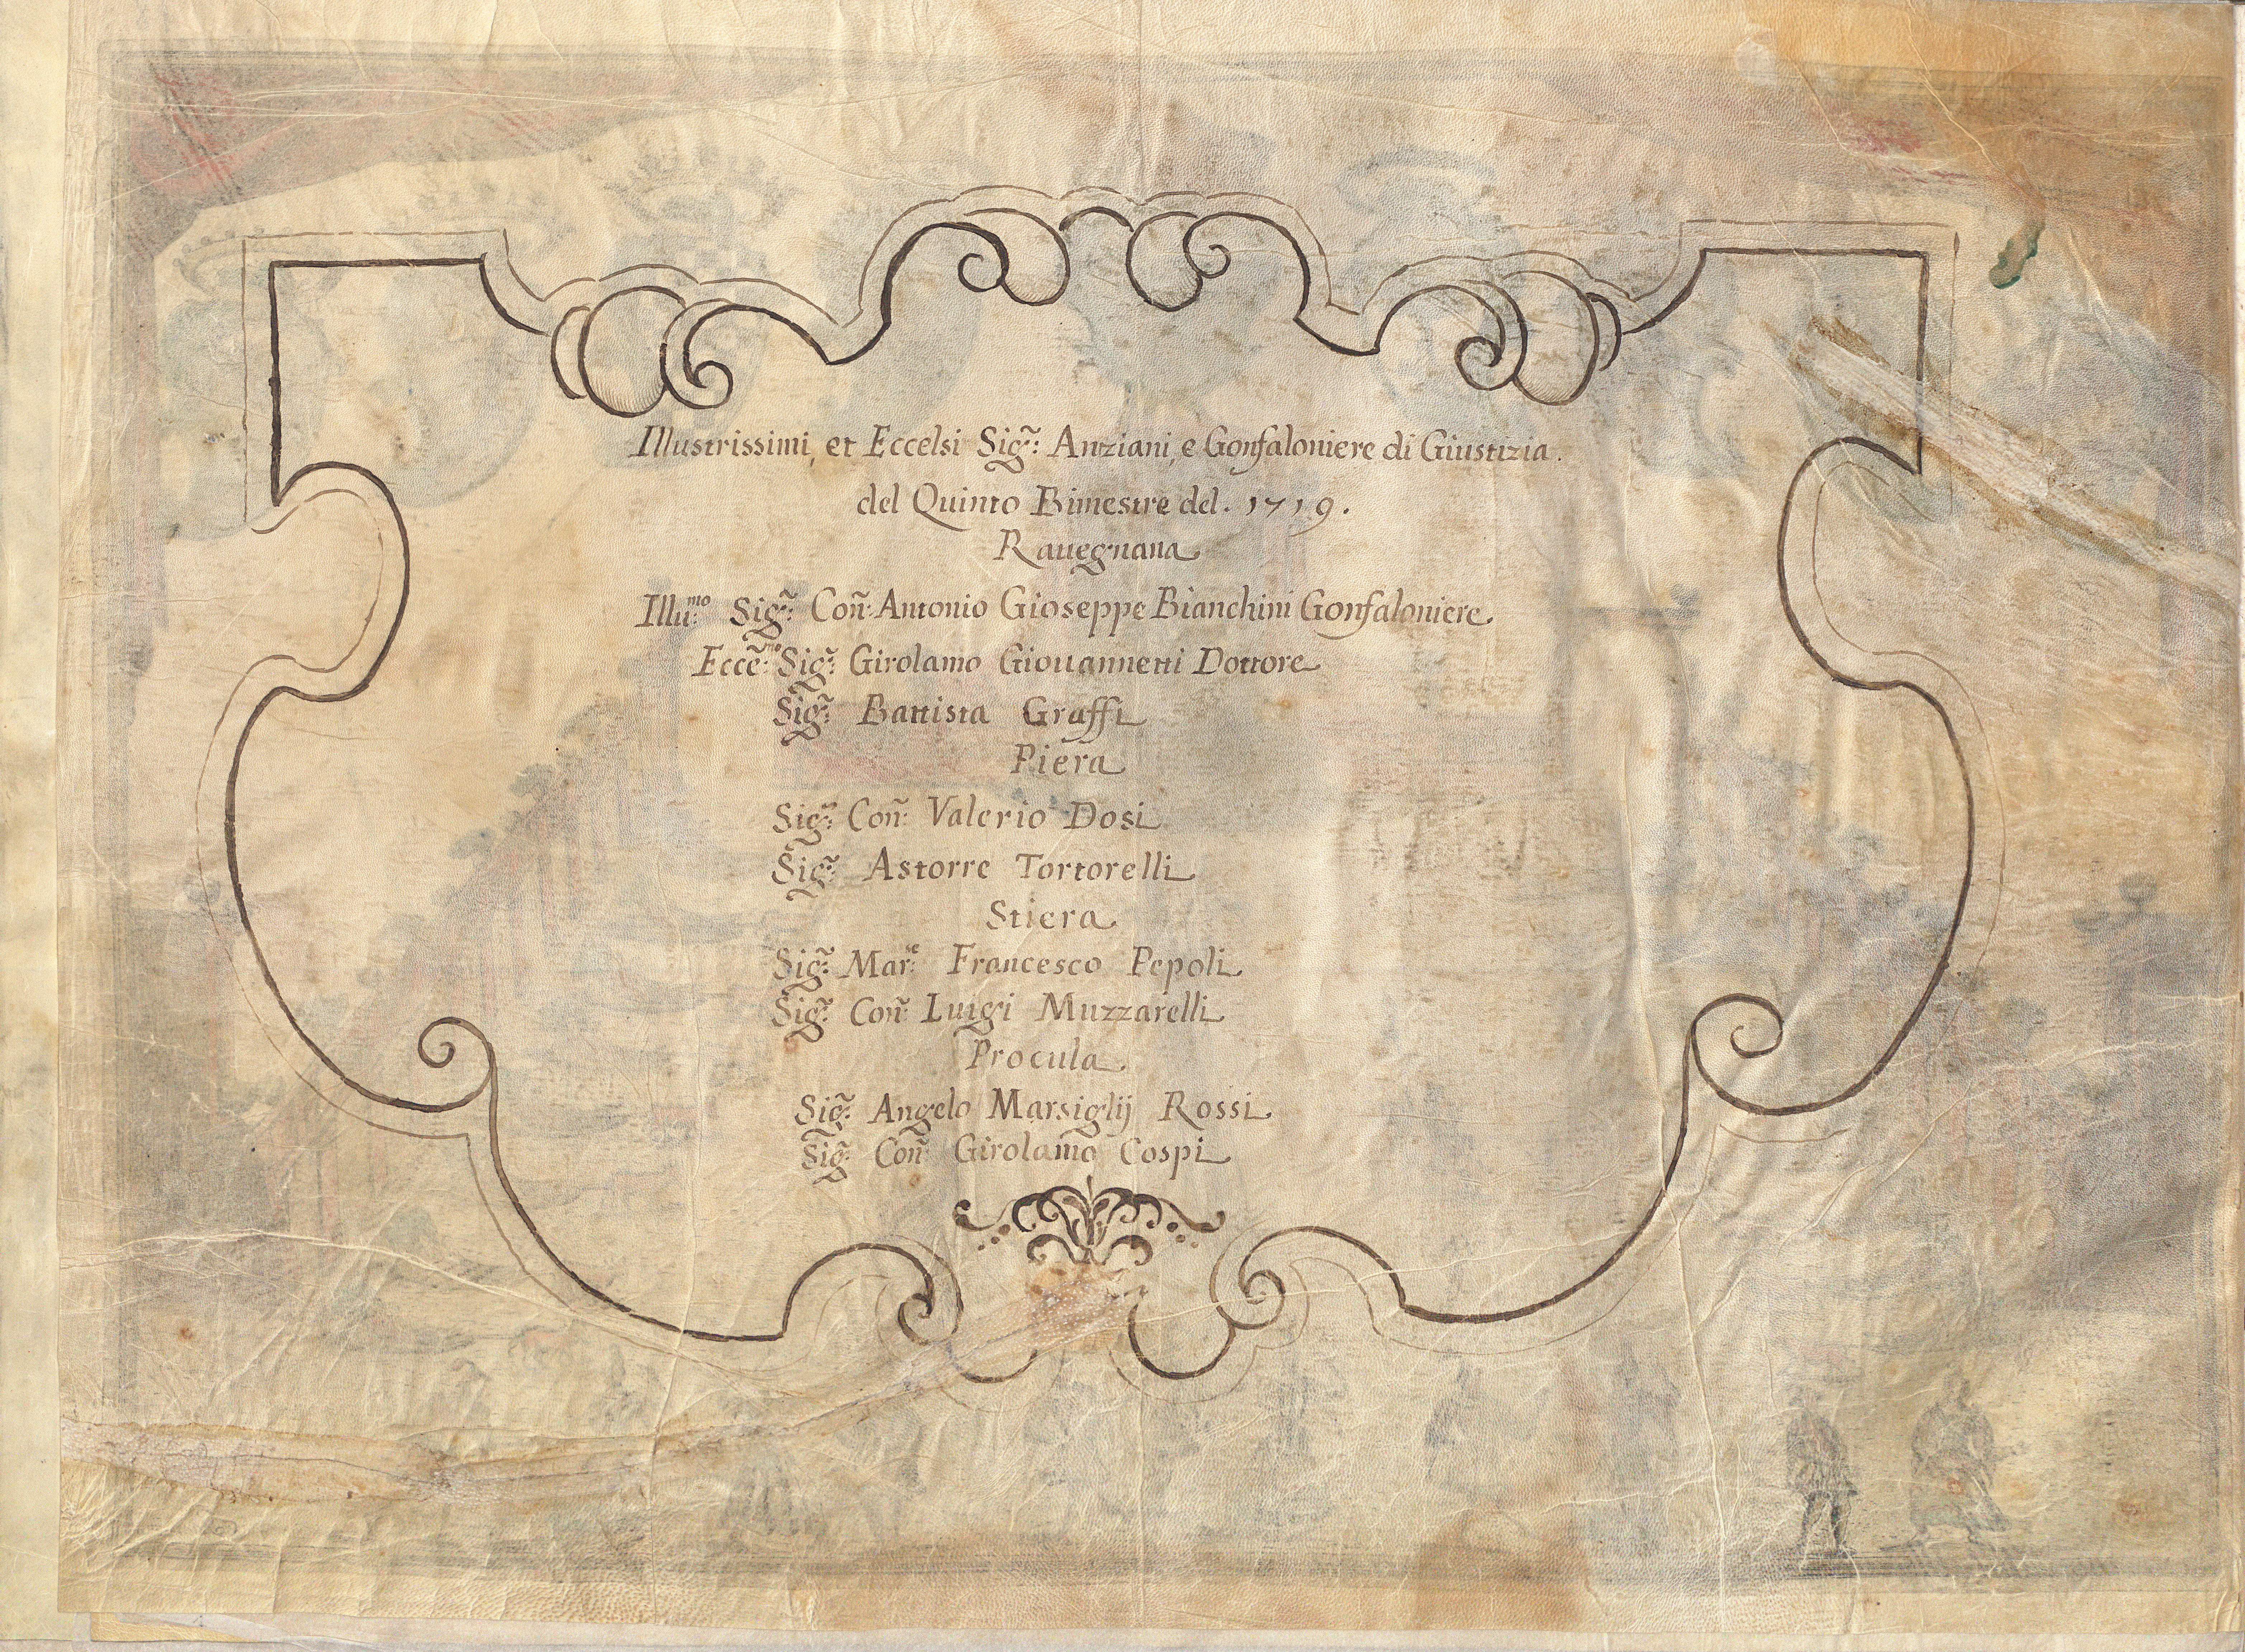 Illustrissimi, et Eccelsi Sig.ri: Anziani, e Gonfaloniere di Giustizia.
del Quinto Bimestre del. 1719.
Rauegnana
Illu:mo Sig.r: Con: Antonio Gioseppe Bianchini Gonfaloniere
Ecce:mo Sig.r: Girolamo Giouannetti Dottore
Sig.r: Battista Graffi
Piera
Sig.r: Con: Valerio Dosi
Sig.r: Astorre Tortorelli
Stiera
Sig.r: Mar:e Francesco Pepoli
Sig.r: Con: Luigi Muzzarelli
Procula
Sig.r: Angelo Marsiglij Rossi
Sig.r: Con: Girolamo Cospi